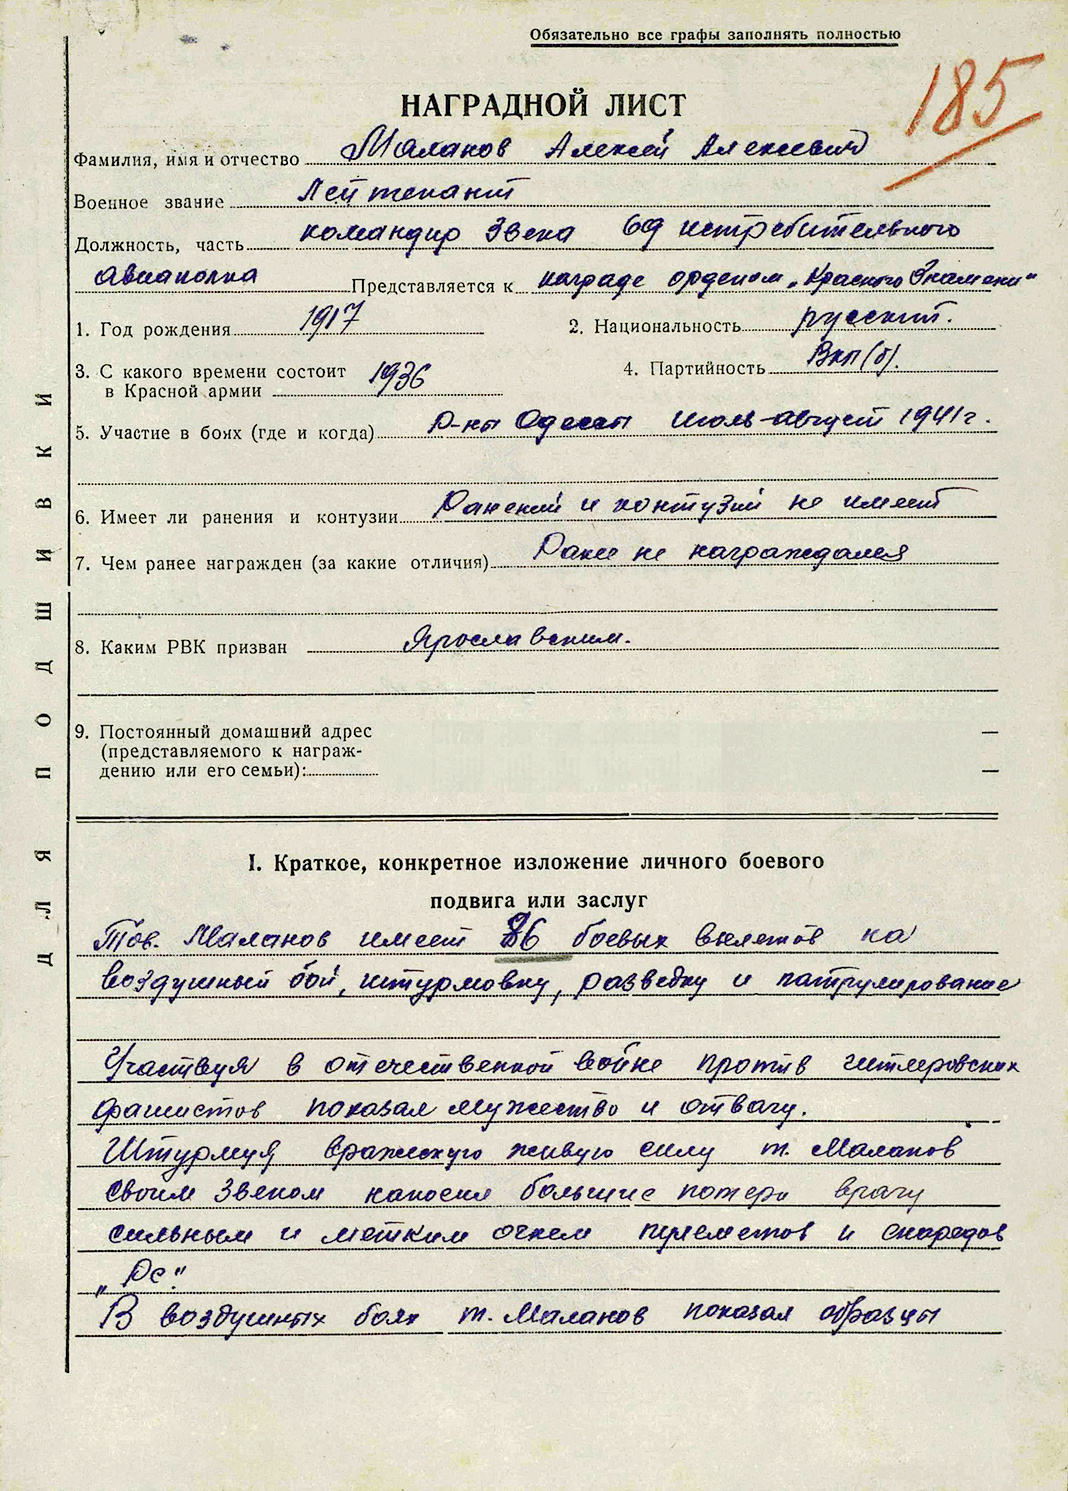 Обязательно все графы заполнять полностью
185
НАГРАДНОЙ ЛИСТ
Фамилия, имя и отчество Маланов Алексей Алексеевич
Военное звание Лейтенант
Должность, часть командир звена 69 истребительного
авиаполка Представляется к награде орденом „Красного Знамени"
1. Год рождения 1917 2. Национальность русский.
3. С какого времени состоит 4. Партийность ВКП(б).
в Красной армии 1936
5. Участие в боях (где и когда) Р-ны Одессы июль-август 1941 г.
6. Имеет ли ранения и контузии Ранений и контузий не имеет
7. Чем ранее награжден (за какие отличия) Ранее не награждался
8. Каким РВК призван Ярославским.
9. Постоянный домашний адрес
(представляемого к награж-
дению или его семьи):
ДЛЯ ПОДШИВКИ
I. Краткое, конкретное изложение личного боевого
подвига или заслуг
Тов. Маланов имеет 86 боевых вылетов на
воздушный бой, штурмовку, разведку и патрулирование
Участвуя в отечественной войне против гитлеровских
фашистов показал мужество и отвагу.
Штурмуя вражескую живую силу т. Маланов
своим звеном наносил большие потери врагу
сильным и метким огнем пулеметов и снарядов
„Рс."
В воздушных боях т. Маланов показал образцы